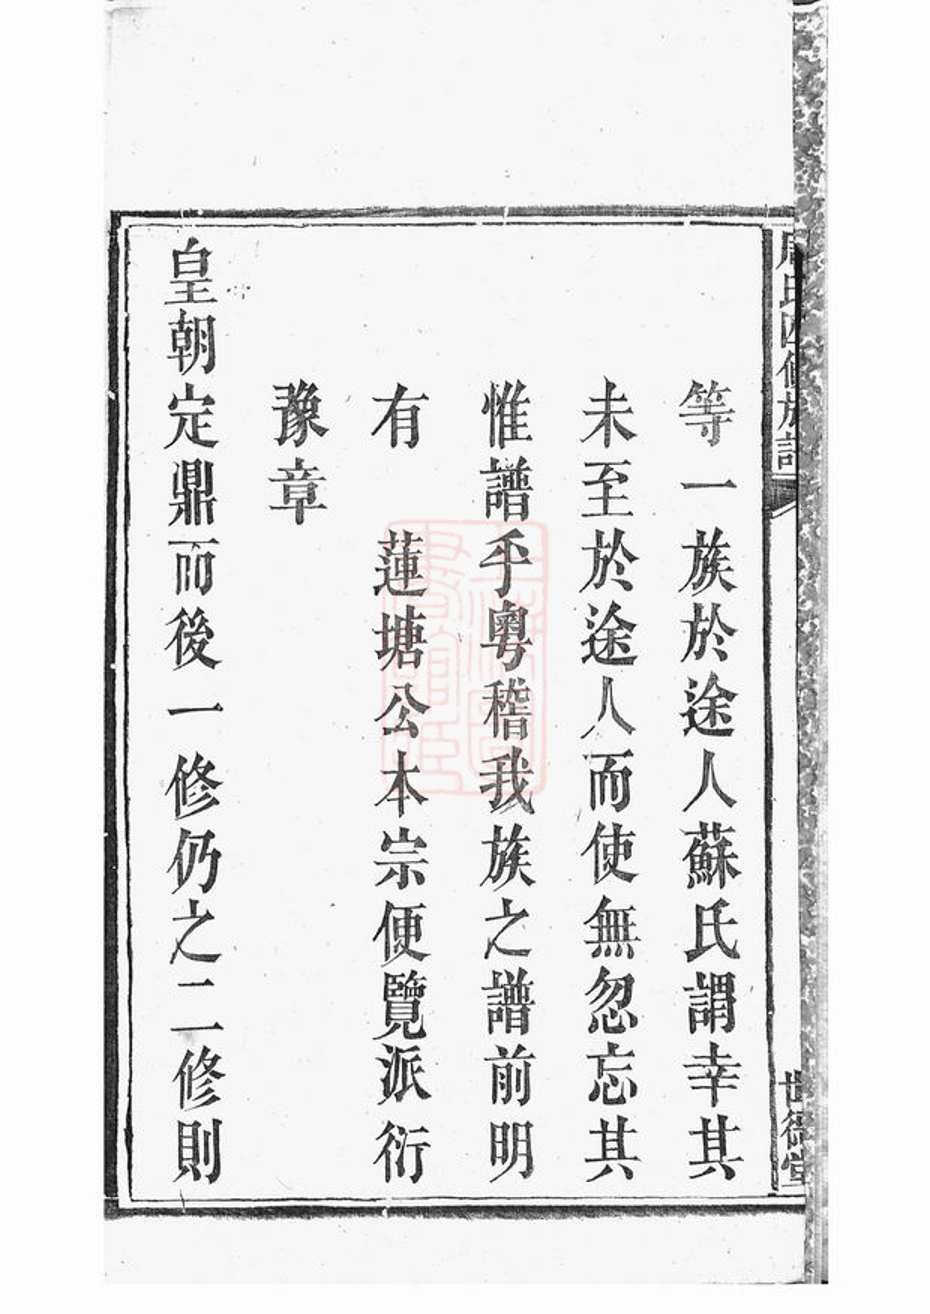 周氏四修族譜
世德堂
等一族於途人蘇氏謂幸其
未至於途人而使無忽忘其
惟譜乎粵稽我族之譜前明
有 蓮塘公本宗便覽派衍
豫章
皇朝定鼎而後一修仍之二修則